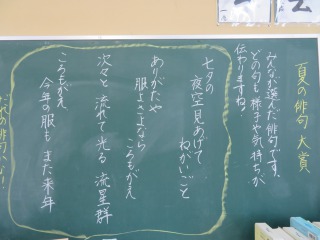 夏の俳句大賞
みんなが選んだ俳句です。
どの句も様子や気持ちが
伝わりますね。
七夕の
夜空見あげて
ねがいごと
ありがたや
服よさよなら
ころもがえ
次々と流れて光る流星群
ころもがえ
今年の服もまた来年
だれの俳句かな?